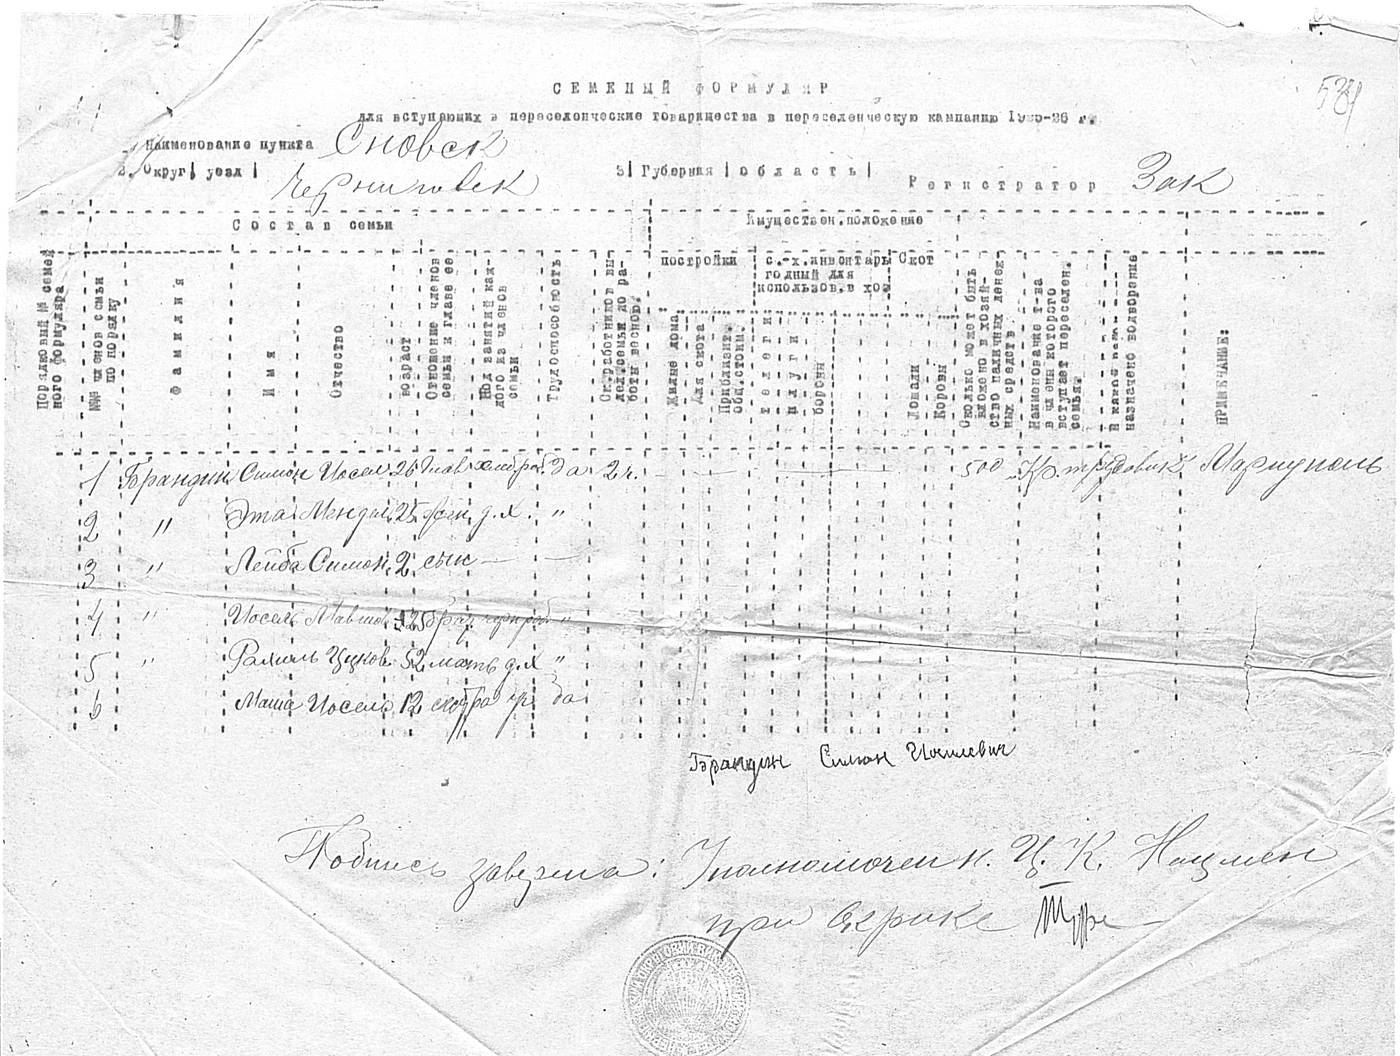 СЕМЕЙЫЙ ФОРМУЛЯР
для вступающих в переселенческие товарищества в переселенческую кампанию 1925-26 г.
Наименование пункта Сновск
2. Округ| уезд| Черниговск 3| Губерния |область| Регистратор Зак
Состав семьи
Имуществен.положение
постройки
с.-х.инвентарь
годный для
использов.в хоз
Скот
Порядковый №№ семей
ного формуляра
№№ членов семьи
по порядку
Фамилия
Имя
Отчество
возраст
Отношение членов
семьи к главе ее
Род занятий каж-
дого из членов
семьи
Трудоспособность
Ск.работников вы-
дел.семьи до ра-
боты весной.
Жилые дома
Для скота
Приблизит.
общ.стоим.
телеги
плуги
бороны
Лошади
Коровы
Сколько может быть
вложено в хозяй-
ство наличных денеж-
ных средств
Наименование т-ва
в члены которого
вступает переселен.
семья.
назначено водворение
ПРИМЕЧАНИЕ:
1 Брандин Симон Иосел. 26 Глав хлебраб да 2 ч. — — 500 Мариуполь
2 " Эта Мендел. 25 жен. д.х. "
3 " Лейба Симон. 2 сын — —
4 " Иосель "
5 " Рахиль Ицков. 52 мать д.х "
6 Маша Иосел. 12 да
Брандин Симон Иоселевич
Подпись заверена: Уполномочен н. Ц.К. Нацмен
при Окрике